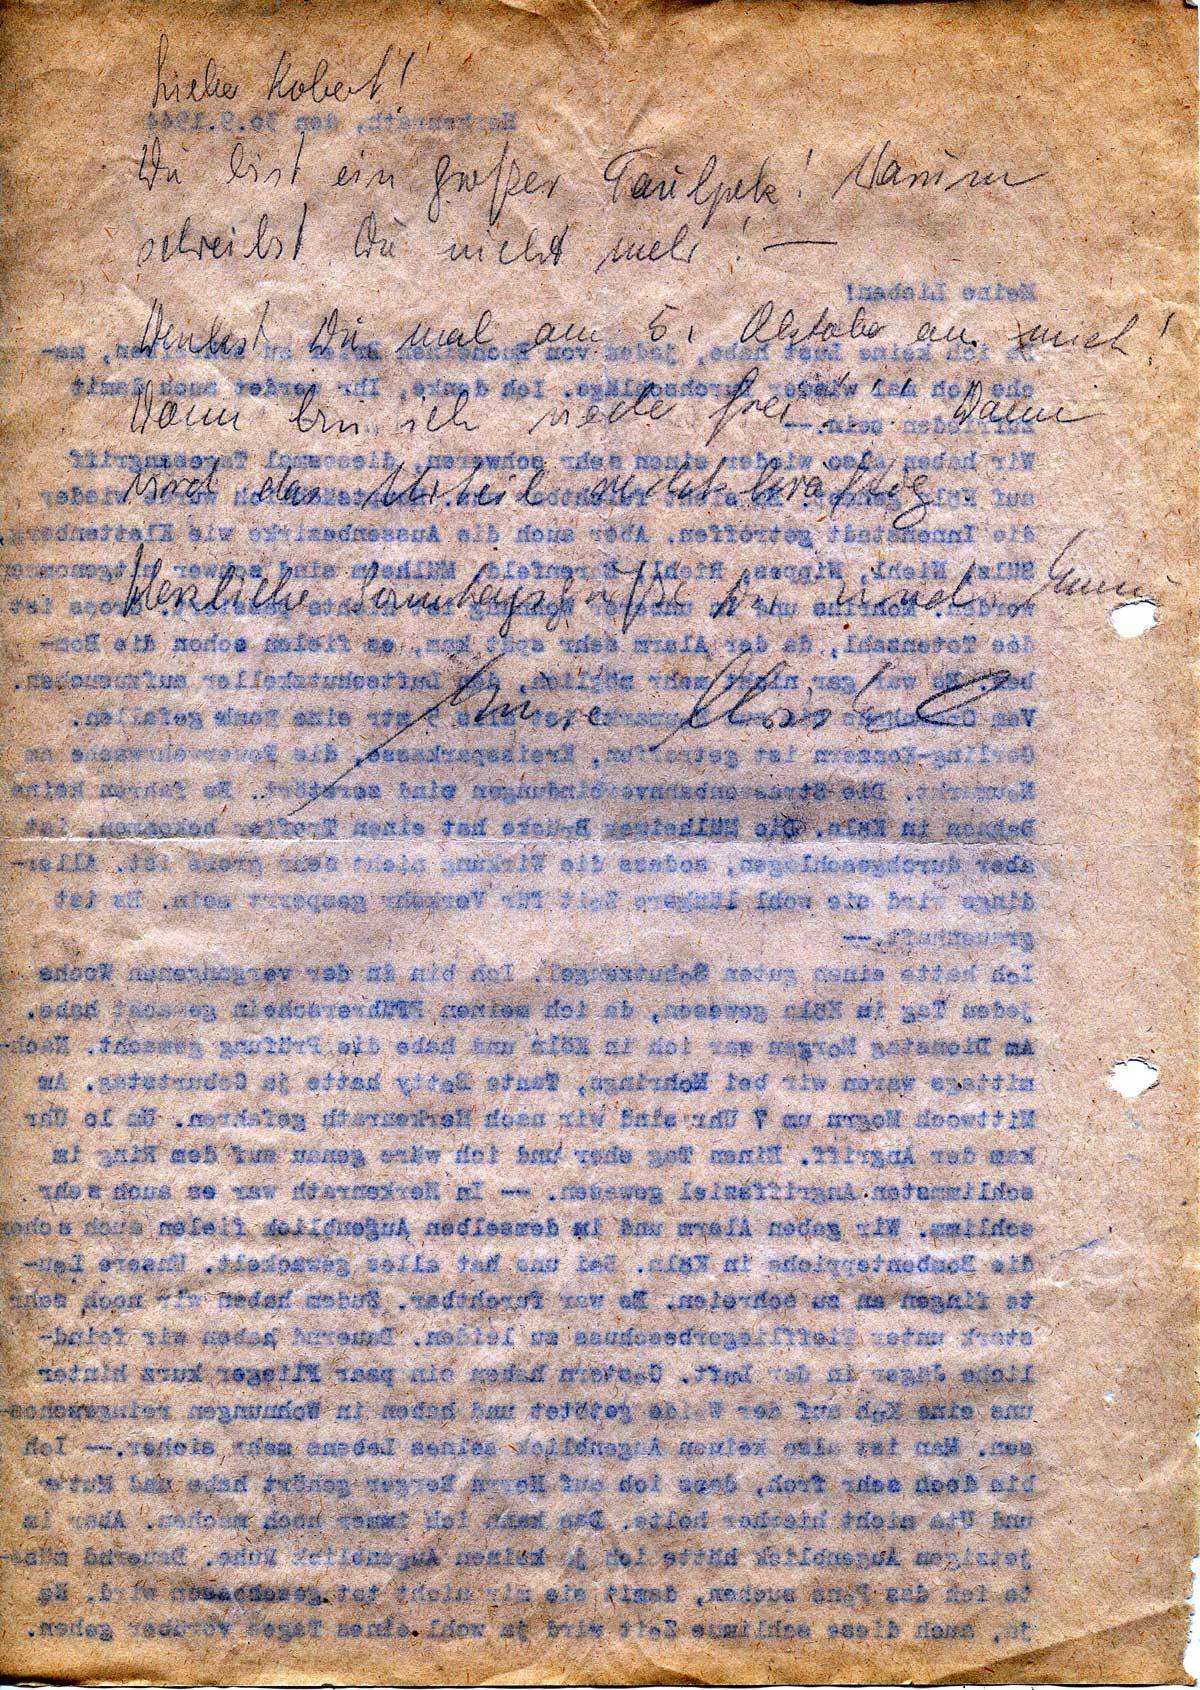 Lieber Robert!
Du bist ein großer Faulpelz! Warum
schreibst Du nicht mehr! —
Denkst Du mal am 5. Oktober an mich!
Dann bin ich wieder frei. Dann
wird das Urteil rechtskräftig
Herzliche Sonntagsgrüße Dir und
Herkenrath, den 30.9.1944
Meine Lieben!
Da ich keine Lust habe, jedem von Euch einen Brief zu schreiben, ma-
che ich mal wieder Durchschläge. Ich denke, Ihr werdet auch damit
zufrieden sein.--
Wir haben also wieder einen sehr schweren, diesesmal Tagesangriff
auf Köln wieder
die Innenstadt getroffen. Aber auch die Aussenbezirke wie Klettenberg,
Sülz, Niehl, Nippes, Riehl, Ehrenfeld, Mülheim sind schwer mitgenommen
worden. Mohrins und in unserer Wohnung ist nichts passiert. Gross ist
die Totenzahl, da der Alarm sehr spät kam, es fielen schon die Bom-
ben. Es war gar nicht mehr möglich, den Luftschutzkeller aufzusuchen.
Vom ist alle 5 mtr eine Bombe gefallen.
Gerling-Konzern ist getroffen, Kreissparkasse, die Feuerwehrwache am
Neumarkt. Die Strassenbahnverbindungen sind zerstört. Es fahren keine
Bahnen in Köln. Die Mülheimer Brücke hat einen Treffer bekommen, ist
aber durchgeschlagen, sodass die Wirkung nicht sehr gross ist. Aller-
dings wird sie wohl längere Zeit für Verkehr gesperrt sein. Es ist
grauenhaft.--
Ich hatte einen guten Schutzengel. Ich bin in der vergangenen Woche
jeden Tag in Köln gewesen, da ich meinen FFührerschein gemacht habe.
Am Dienstag Morgen war ich in Köln und habe die Prüfung gemacht. Nach-
mittags waren wir bei Mohrings, Tante Betty hatte ja Geburtstag. Am
Mittwoch Mogrn um 7 Uhr sind wir nach Herkenrath gefahren. Um 1o Uhr
kam der Angriff. Einen Tag eher und ich wäre genau auf dem Ring im
schlimmsten Angriffsziel gewesen. -- In Herkenrath war es auch sehr
schlimm. Wir gaben Alarm und im demselben Augenblick fielen auch schon
die Bombenteppiche in Köln. Bei uns hat alles gewackelt. Unsere Leu-
te fingen an zu schreien. Es war furchtbar. Zudem haben wir noch sehr
stark unter Tieffliegerbeschuss zu leiden. Dauernd haben wir feind-
liche Jäger in der Luft. Gestern haben ein paar Flieger kurz hinter
uns eine Kuh auf der Weide getötet und haben in Wohnungen reingeschos-
sen. Man ist also keinen Augenblick seines Lebens mehr sicher.-- Ich
bin doch sehr froh, dass ich auf Herrn Berger gehört habe und Mutter
und Uta nicht hierher holte. Das kann ich immer noch machen. Aber im
jetzigen Augenblick hätte ich ja keinen Augenblick Ruhe. Dauernd müss-
te ich das suchen, damit sie mir nicht tot geschossen wird. Na
ja, auch diese schlimme Zeit wird ja wohl eines Tages vorüber gehen.